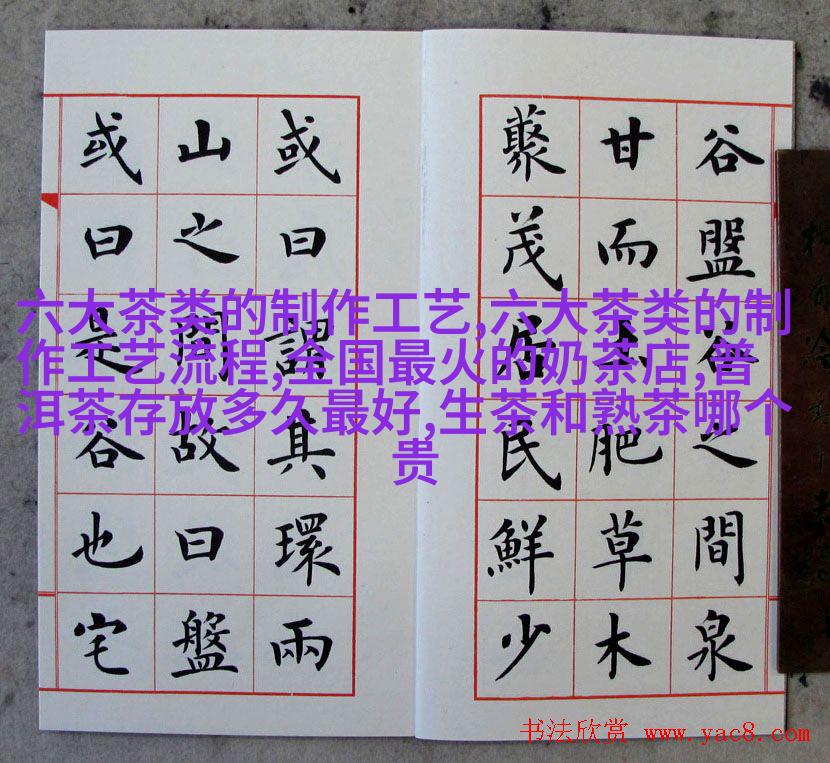 谷盤谷之間泉
甘而土肥草木
藂茂居民鮮少
或曰謂其環兩
山之間故曰盤
或曰是谷也宅
六大茶类的制作工艺,六大茶类的制
作工艺流程,全国最火的奶茶店,普
洱茶存放多久最好,生茶和熟茶哪个
贵
书法欣赏 www.yac8.com